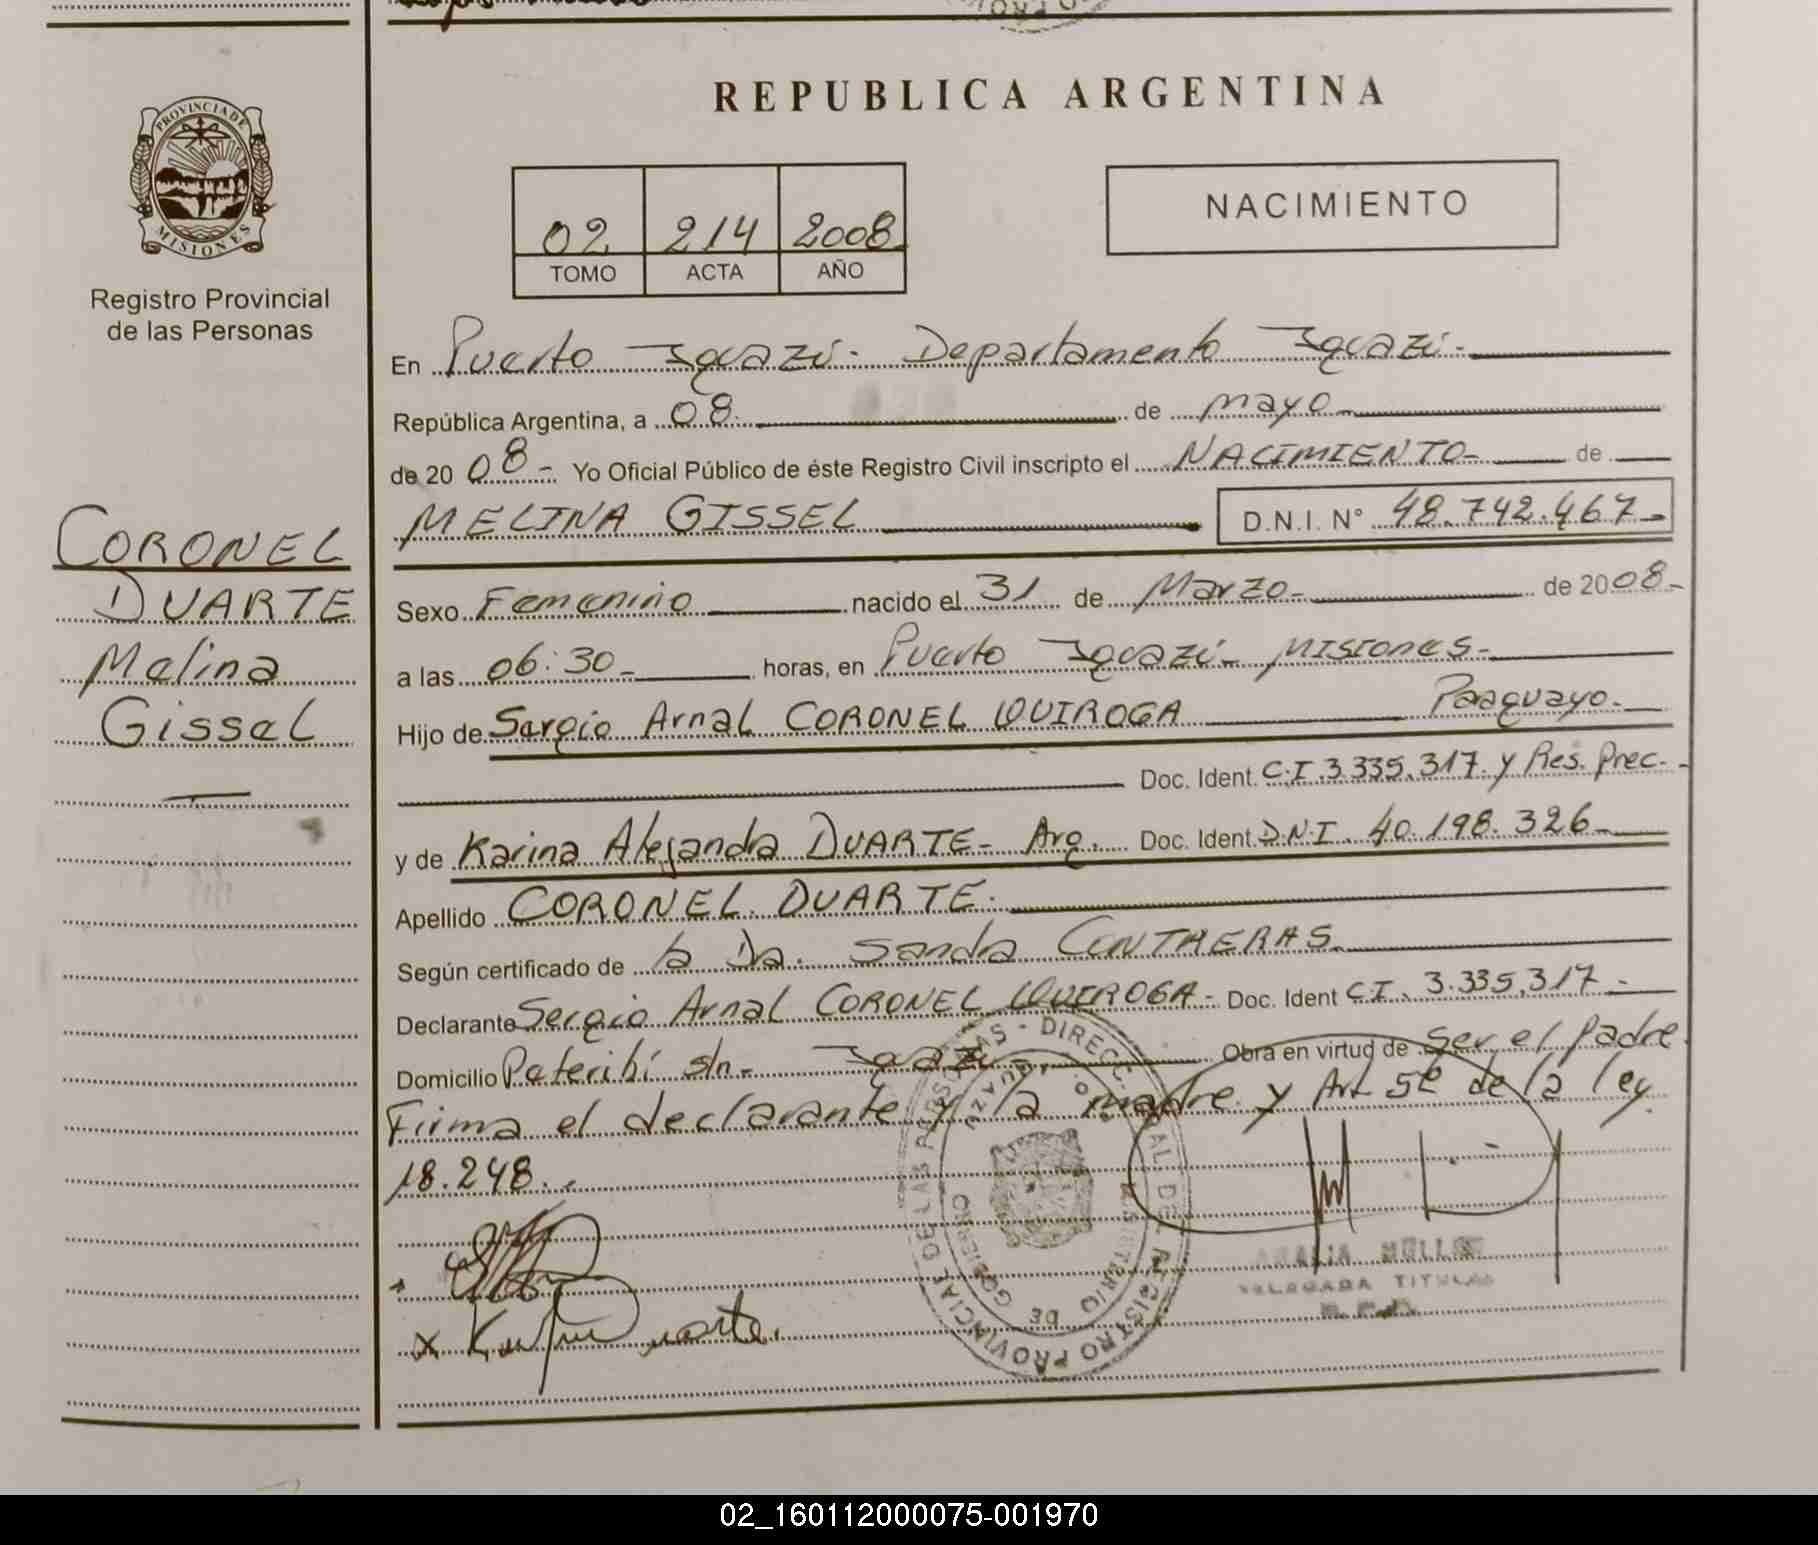 PROVINCIA DE
MISIONES
Registro Provincial
de las Personas
CORONEL
DUARTE
Melina
Gissel
REPUBLICA ARGENTINA
02 214 2008
TOMO ACTA AÑO
NACIMIENTO
En Puerto Iguazú- Departamento Iguazú-
República Argentina, a 08 de mayo
de 20 08- Yo Oficial Público de éste Registro Civil inscripto el NACIMIENTO- de
MELINA GISSEL D.N.I. N° 48.742.467-
Sexo Femenino nacido el 31 de Marzo- de 2008-
a las 06:30- horas, en Puerto Iguazú- Misiones-
Hijo de Sergio Arnal CORONEL QUIROGA Paaguayo-
Doc. Ident. C.I. 3.335.317. y Res. Prec.-
y de Karina Alejandra DUARTE- Arg. Doc. Ident. D.N.I. 40.198.326-
Apellido CORONEL DUARTE-
Según certificado de la Da. Sandra CONTRERAS
Declarante Sergio Arnal CORONEL QUIROGA- Doc. Ident C.I. 3.335.317-
Domicilio Pateribí s/n- Iguazú Obra en virtud de Ser el Padre.
Firma el declarante y la madre y Art 5º de la ley
18.248.
x K Duarte.
REGISTRO PROVINCIAL DE LAS PERSONAS - DIRECC. GRAL DEL
MINISTERIO DE GOBIERNO
MULLER
DELEGADA TITULAR
02_160112000075-001970